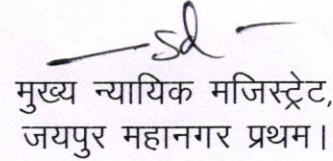 sd
मुख्य न्यायिक मजिस्ट्रेट,
जयपुर महानगर प्रथम।